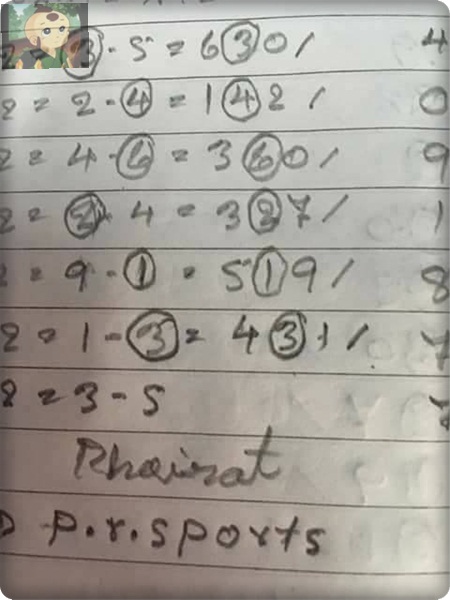 2 = 3 - 5 = 630 / 4
2 = 2 - 4 = 142 / 0
2 = 4 - 6 = 360 / 9
2 = 2 - 4 = 327 / 1
2 = 9 - 1 = 519 / 8
2 = 1 - 3 = 431 / 7
2 = 3 - 5
p.r.sports